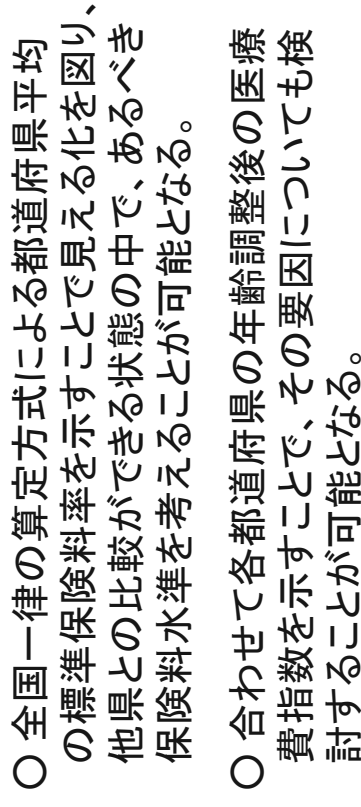 ○ 全国一律の算定方式による都道府県平均
の標準保険料率を示すことで見える化を図り、
他県との比較ができる状態の中で、あるべき
保険料水準を考えることが可能となる。
○ 合わせて各都道府県の年齢調整後の医療
費指数を示すことで、その要因についても検
討することが可能となる。